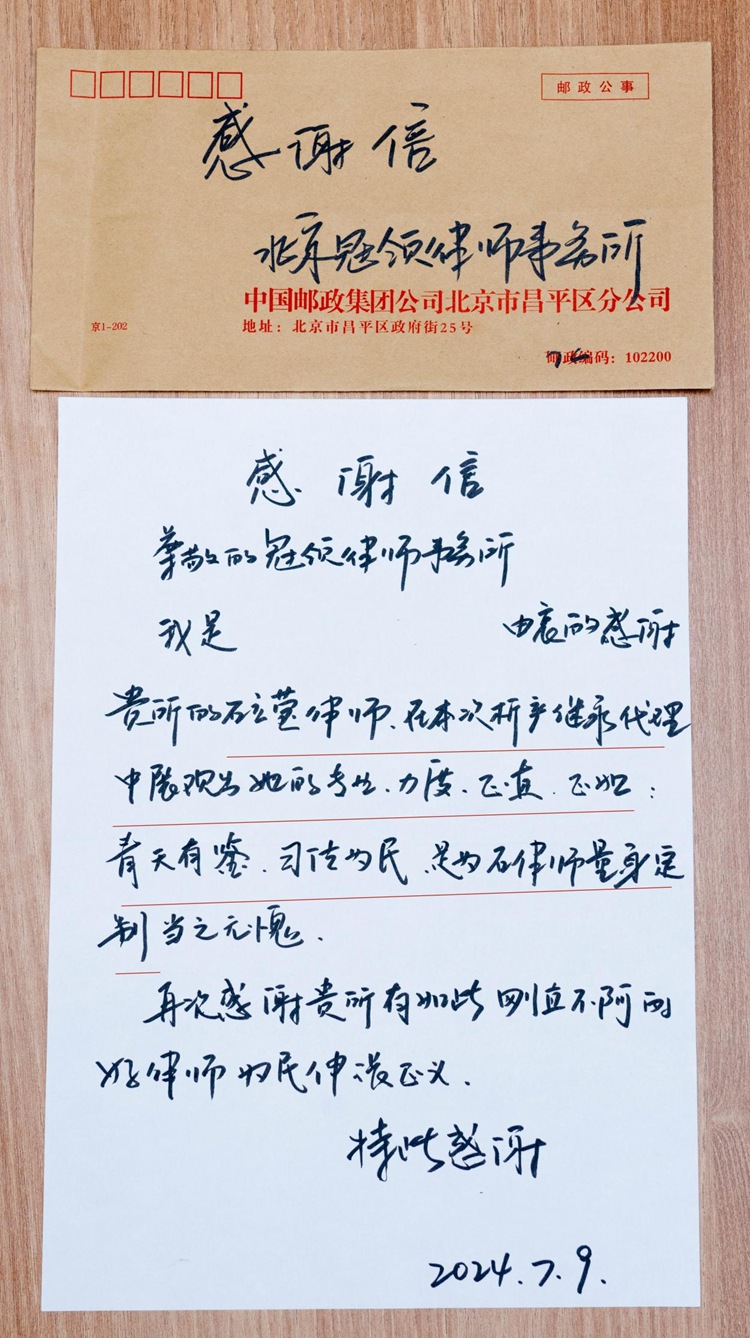 邮政公事
感谢信
北京冠领律师事务所
中国邮政集团公司北京市昌平区分公司
京1-202
地址：北京市昌平区政府街25号
邮政编码：102200
感谢信
尊敬的冠领律师事务所
我是 由衷的感谢
贵所的石立莹律师、在本次析产继承代理
中展现出她的专业、力度、正直、正如：
青天有鉴、司法为民、是为石律师量身定
制当之无愧、
再次感谢贵所有如此刚直不阿的
好律师为民伸张正义、
特此感谢
2024.7.9.